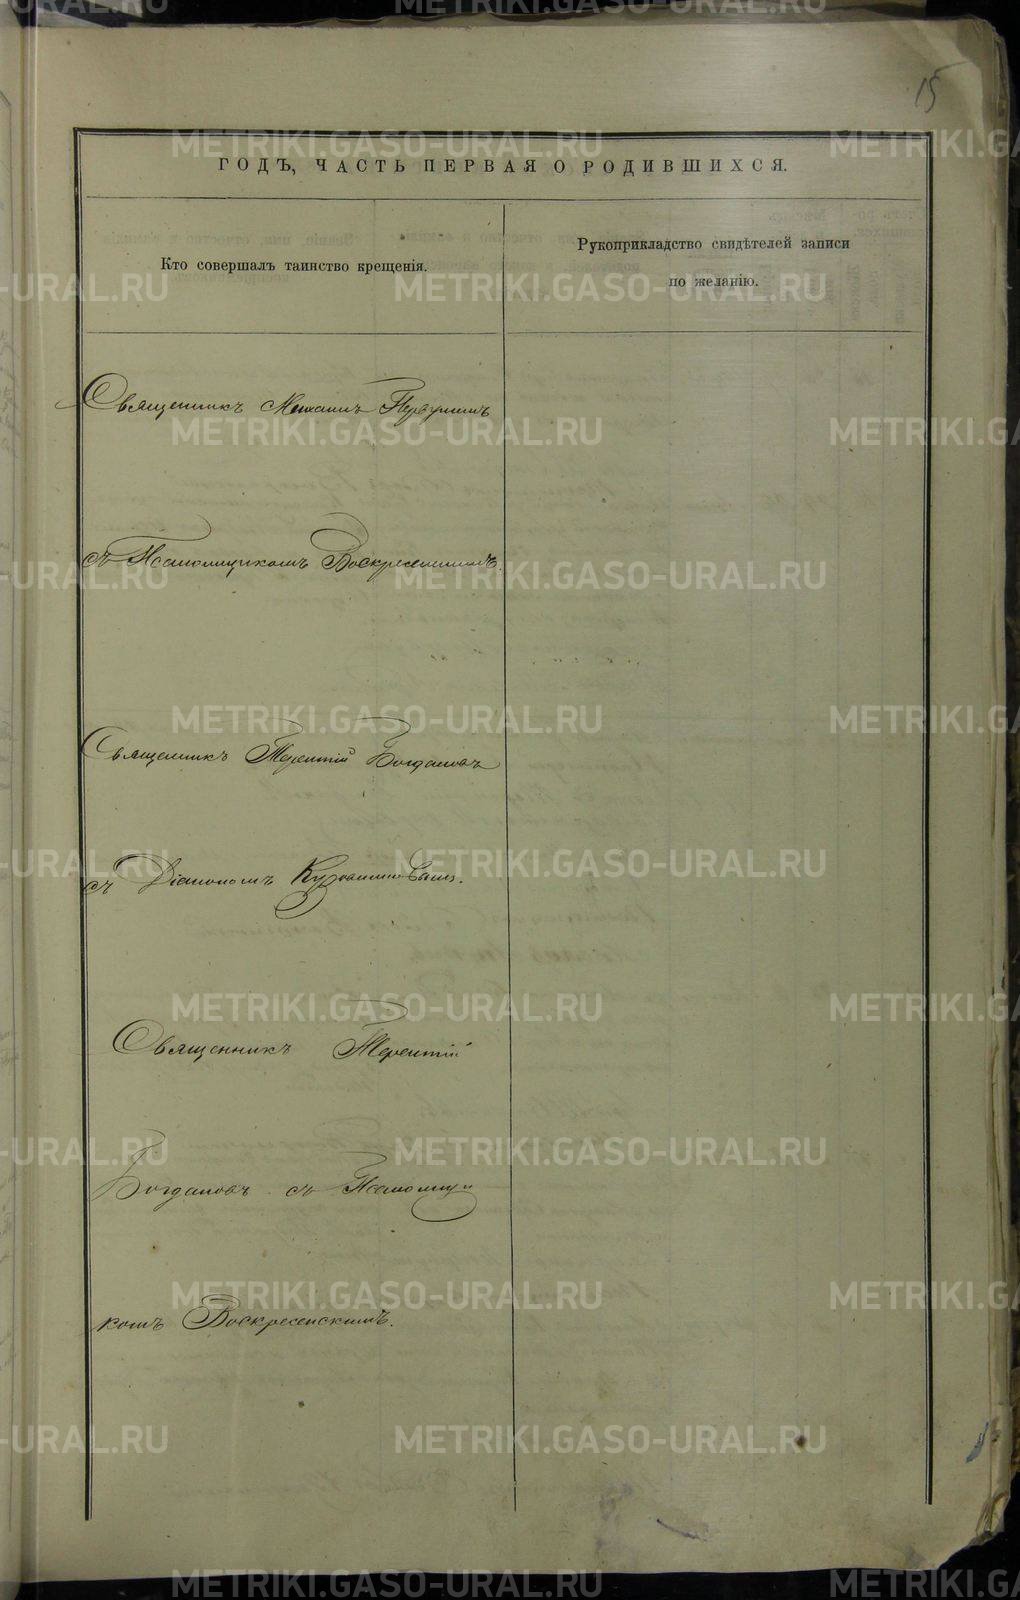 15
ГОДЪ, ЧАСТЬ ПЕРВАЯ О РОДИВШИХСЯ.
Кто совершалъ таинство крещенія.
Рукоприкладство свидѣтелей записи
по желанію.
Священникъ Михаилъ Первушинъ
съ Псаломщикомъ Воскресенскимъ.
Священникъ Терентій Богдановъ
съ Діакономъ
Священникъ Терентій
Богдановъ съ Псаломщи
комъ Воскресенскимъ.
METRIKI.GASO-URAL.RU